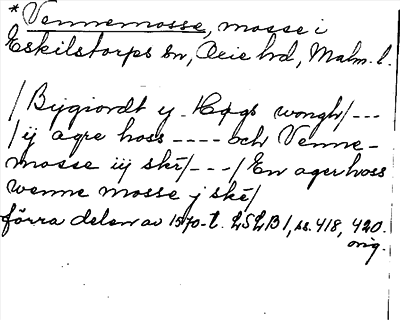 *Vennemosse, mosse i
Eskilstorps sn, Oxie hd, Malm. l.
/Bijgiordt y Høgs wongh/---
/ij agre hoss ---- och Venne-
mosse iij ske/---/En ager hoss
wenne mosse j ske/
förra delen av 1570-t. LSLB 1, ss. 418, 420.
orig.